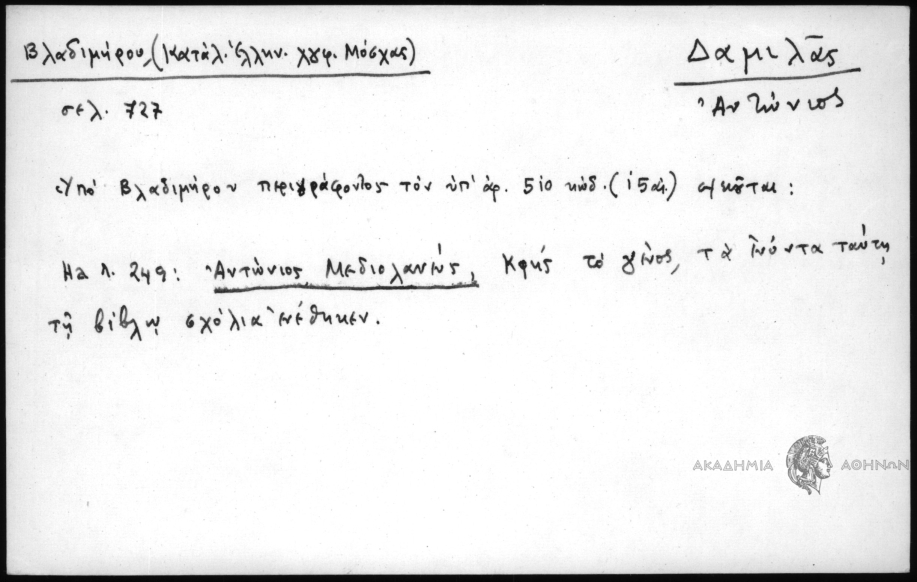 Βλαδιμήρου, (Κατάλ. Ἑλλην. χγφ. Μόσχας)
Δαμιλᾶς
Ἀντώνιος
σελ. 727
Ὑπὸ Βλαδιμήρου περιγράφοντος τὸν ὑπ' ἀρ. 510 κώδ. (15 αἰ.)
На л. 249: Ἀντώνιος Μεδιολανεύς, Κρὴς τὸ γένος, τὰ ἐνόντα ταύτῃ
τῇ βίβλῳ σχόλια ἐνέθηκεν.
ΑΚΑΔΗΜΙΑ ΑΘΗΝΩΝ